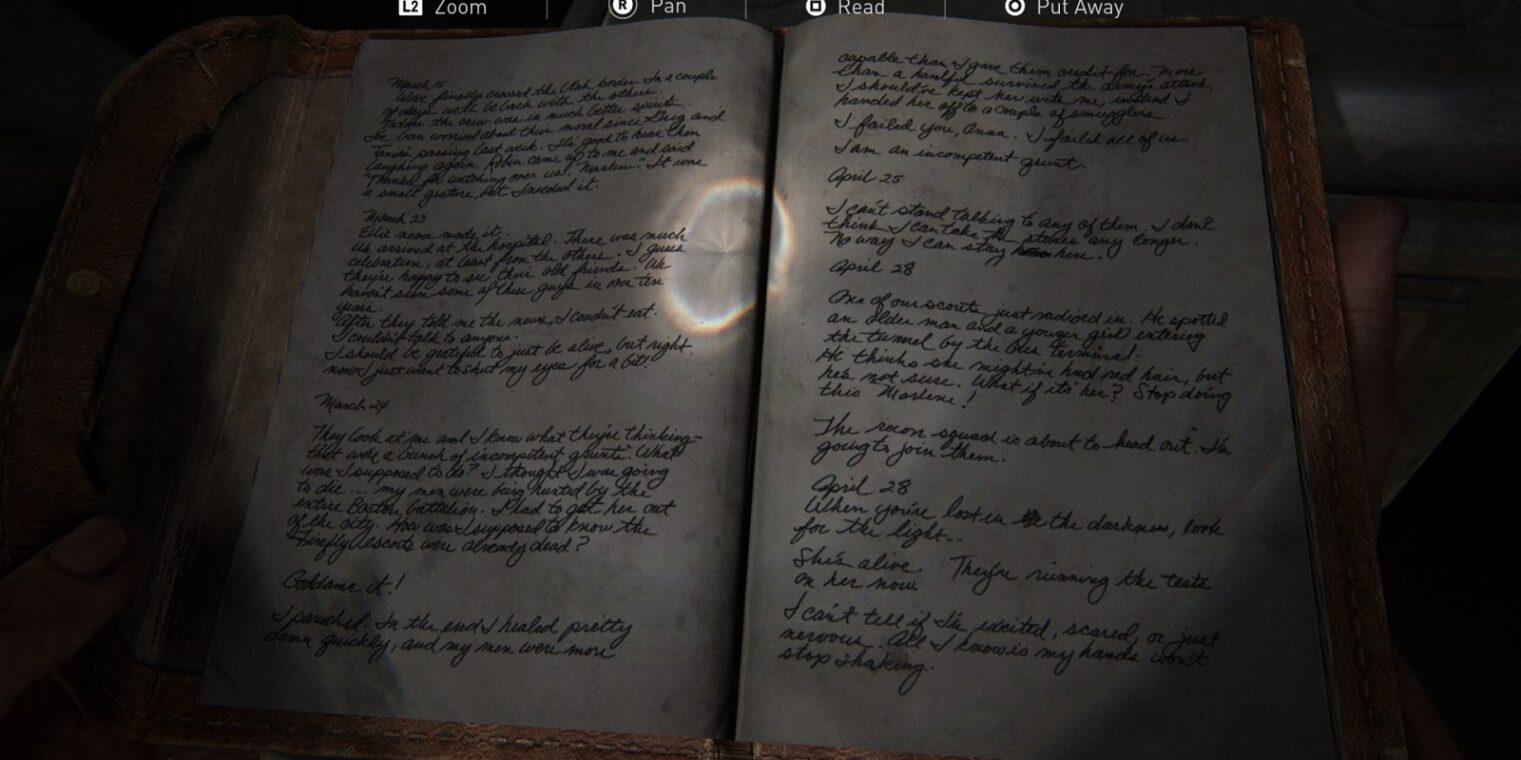 L2 Zoom
R Pan
Read
Put Away
March 15
We've finally crossed the Utah border. In a couple
of days we'll be back with the others.
Today the crew was in much better spirits.
I've been worried about their moral since Greg and
Tanis' passing last week. It's good to hear them
laughing again. Robin came up to me and said
"Thanks for watching over us, Marlene." It was
a small gesture, but I needed it.
March 23
Ellie never made it.
We arrived at the hospital. There was much
celebration, at least from the others. I guess
they're happy to see their old friends. We
haven't seen some of these guys in over ten
years.
After they told me the news, I couldn't eat.
I couldn't talk to anyone.
I should be grateful to just be alive, but right
now I just want to shut my eyes for a bit.
March 24
They look at me and I know what they're thinking-
that we're a bunch of incompetent grunts. What
was I supposed to do? I thought I was going
to die... my men were being hunted by the
entire Boston battalion. I had to get her out
of the city. How was I supposed to know the
Firefly escorts were already dead?
Goddamn it!
I panicked. In the end I healed pretty
damn quickly, and my men were more
capable than I gave them credit for. More
than a handful survived the army's attack.
I should've kept her with me, instead I
handed her off to a couple of smugglers.
I failed you, Anna. I failed all of us.
I am an incompetent grunt.
April 25
I can't stand talking to any of them. I don't
think I can take the stares any longer.
No way I can stay here.
April 28
One of our scouts just radioed in. He spotted
an older man and a younger girl entering
the tunnel by the bus terminal.
He thinks she might've had red hair, but
he's not sure. What if it's her? Stop doing
this Marlene!
The recon squad is about to head out. I'm
going to join them.
April 28
When you're lost in the darkness, look
for the light..
She's alive. They're running the tests
on her now.
I can't tell if I'm excited, scared, or just
nervous. All I know is my hands won't
stop shaking.